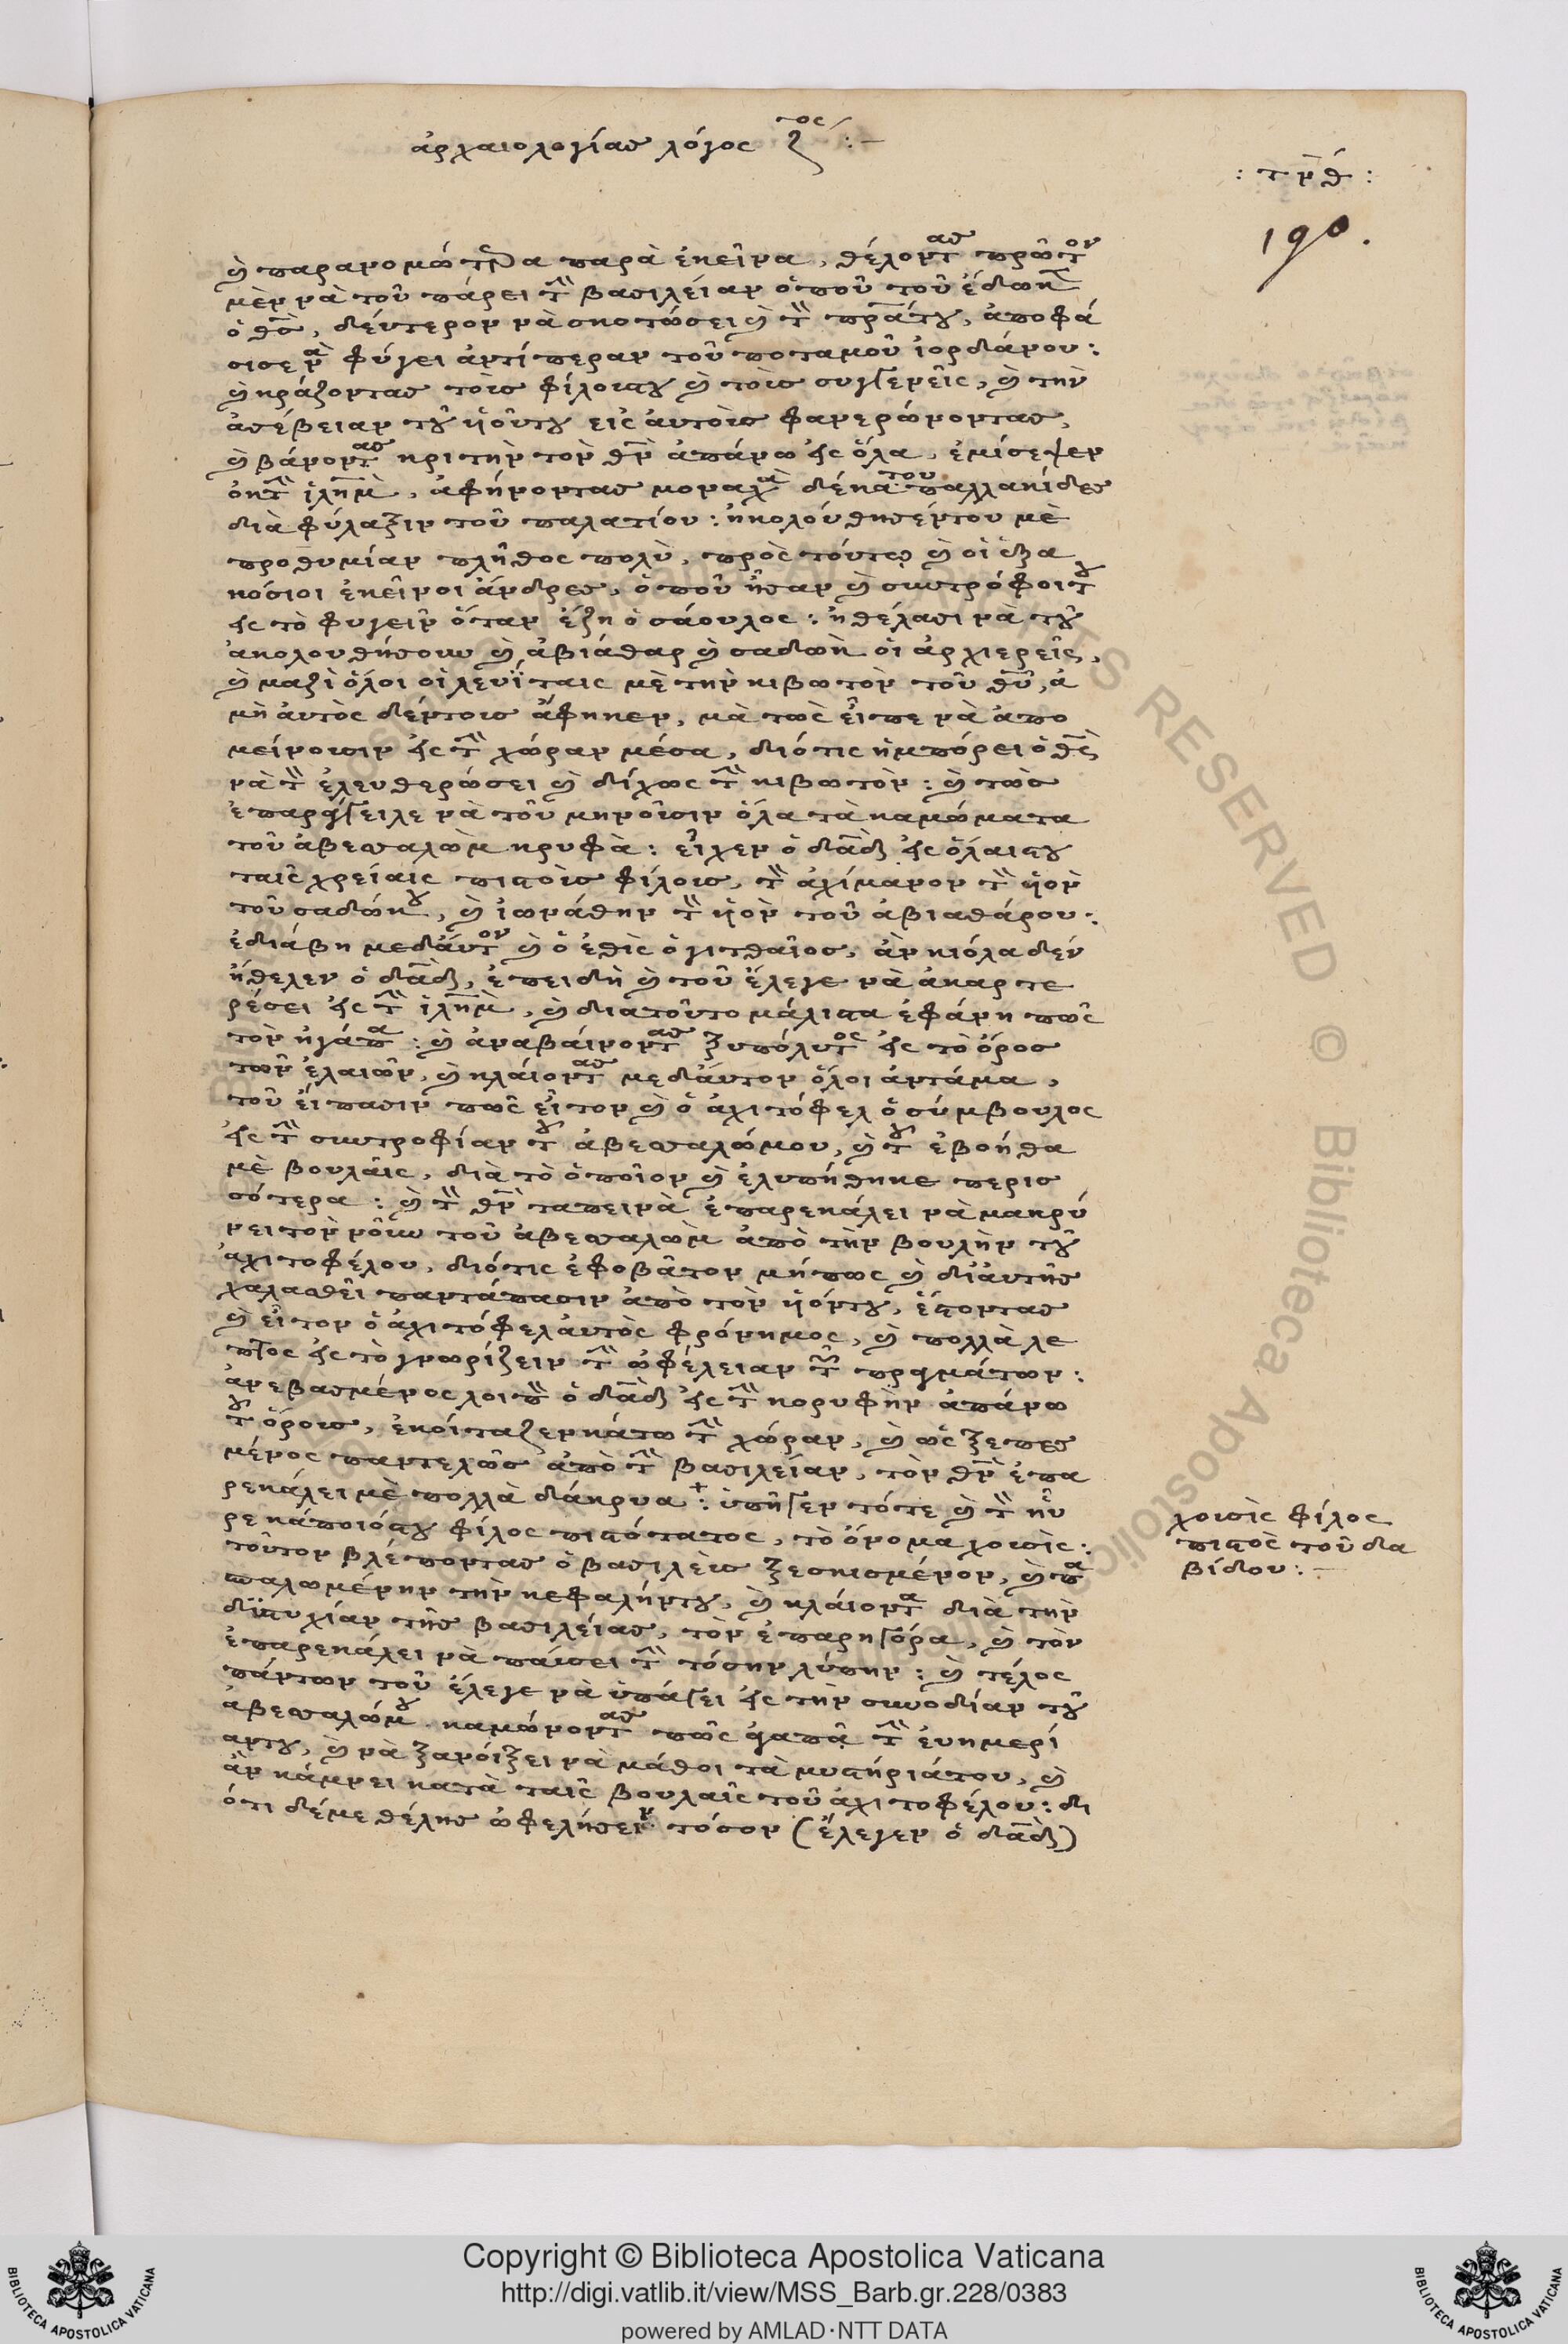 ἀρχαιολογίας λόγος ζ τος :-
: τκθ :
190.
ὶ παρανομώτερα παρὰ ἐκεῖνα, θέλοντας πρῶτον
μὲν νὰ τοῦ πάρει τὴν βασιλείαν ὁποῦ τοῦ ἔδωκεν
ὁ θς, δεύτερον νὰ σκοτώσει κ τὸν πράτου, ἀποφά
σισε νὰ φύγει ἀντίπεραν τοῦ ποταμοῦ ἰορδάνου:
κ κράζοντας τοὺς φίλουςτου κ τοὺς συγγενεῖς, κ τὴν
ἀσέβειαν τοῦ ὑιοῦντου εἰς ἀυτοὺς φανερώνοντας,
κ βάνοντας κριτὴν τὸν θν ἀπάνω εἰς ὅλα, ἐμίσεψεν
ἐκτὴν ἱλημ, ἀφήνοντας μοναχὰ δέκα του παλλακίδες
διὰ φύλαξιν τοῦ παλατίου: ἠκολούθησέντου μὲ
προθυμίαν πλῆθος πολὺ, πρὸς τούτοις κ οἱ ἑξα
κόσιοι ἐκεῖνοι ἄνδρες, ὁποῦ ἦσαν κ συντρόφοιτου
εἰς τὸ φυγεῖν ὅταν ἔζη ὁ σάουλος: ἠθέλασι νὰ τοῦ
ἀκολουθήσουν κ ἀβιάθαρ κ σαδὼκ οἱ ἀρχιερεῖς,
κ μαζὶ ὅλοι οἱ λευΐταις μὲ τὴν κιβωτὸν τοῦ θῦ, ἀ
μὴ ἀυτὸς δέντους ἄφηκεν, μὰ τως εἶπε νὰ ἀπο
μείνουσιν εἰς τὴν χώραν μέσα, διότις ἠμπόρει ὁ θς
νὰ τὸν ἐλευθερώσει κ δίχως τὴν κιβωτὸν: κ τως
ἐπαράγγειλε νὰ τοῦ μηνοῦσιν ὅλα τὰ καμώματα
τοῦ ἀβεσαλὼμ κρυφὰ: εἶχεν ὁ δαδ εἰς ὅλαιςτου
ταῖς χρείαις πιστοὺς φίλους, τὸν ἀχίμανον τὸν ὑιὸν
τοῦ σαδώκου, κ ἰωνάθην τὸν ὑιὸν τοῦ ἀβιαθάρου:
ἐδιάβη μεδάυτον κ ὁ ἐθὶς ὁ γιτθαῖος, ἂν κιόλα δέν
ἤθελεν ὁ δαδ, ἐπειδὴ κ τοῦ ἔλεγε νὰ ἀκαρτε
ρέσει εἰς τὴν ἱλημ, κ διατοῦτο μάλιστα ἐφάνη πῶς
τὸν ἠγάπα: κ ἀναβαίνοντας ξυπόλυτος εἰς τὸ ὄρος
τῶν ἐλαιῶν, κ κλάιοντας μεδάυτον ὅλοι ἀντάμα,
τοῦ εἴπασιν πῶς εἶτον κ ὁ ἀχιτόφελ ὁ σύμβουλος
εἰς τὴν συντροφίαν τοῦ ἀβεσαλώμου, κ τοῦ ἐβοήθα
μὲ βουλαῖς, διὰ τὸ ὁποῖον κ ἐλυπήθηκε περισ
σότερα: κ τὸν θν ταπεινὰ ἐπαρεκάλει νὰ μακρύ
νει τὸν νοῦν τοῦ ἀβεσαλὼμ ἀπὸ τὴν βουλὴν τοῦ
ἀχιτοφέλου, διότις ἐφοβᾶτον μήπως κ διἀυτῆς
χαλασθεῖ παντάπασιν ἀπὸ τὸν ὑιόντου, ἔστοντας
κ εἶτον ὁ ἀχιτόφελ ἀυτὸς φρόνημος, κ πολλὰ λε
πτος εἰς τὸ γνωρίζειν τὴν ὠφέλειαν τῶν πραγμάτων:
ἀνεβασμένος λοιπὸν ὁ δαδ εἰς τὴν κορυφὴν ἀπάνω
τοῦ ὄρους, ἐκοίταζεν κάτω τὴν χώραν, κ ὡς ξεπεσ
μένος παντελῶς ἀπὸ τὴν βασιλείαν, τὸν θν ἐπα
ρεκάλει μὲ πολλὰ δάκρυα +: ὑπῆγεν τότε κ τὸν ηὖ
ρε κάποιόςτου φίλος πιστότατος, τὸ ὄνομα χουσὶς:
τοῦτον βλέποντας ὁ βασιλεὺς ξεσκισμένον, κ πα
σπαλωμένην τὴν κεφαλήντου, κ κλάιοντα διὰ τὴν
δυστυχίαν τῆς βασιλείας, τὸν ἐπαρηγόρα, κ τὸν
ἐπαρεκάλει νὰ παύσει τὴν τόσην λύπην: κ τέλος
πάντων τοῦ ἔλεγε νὰ ὑπάγει εἰς τὴν συνοδίαν τοῦ
ἀβεσαλώμου καμώνοντας πῶς ἀγαπᾷ τὴν ἐυημερί
αντου, κ νὰ ξανοίξει νὰ μάθοι τὰ μυστήριάτου, κ
ἂν κάμνει κατὰ ταῖς βουλαῖς τοῦ ἀχιτοφέλου: δι
ότι δέμε θέλης ὠφελήσειν τόσον (ἔλεγεν ὁ δαδ)
χουσὶς φίλος
πιστὸς τοῦ δα
βίδου:-
Copyright © Biblioteca Apostolica Vaticana
http://digi.vatlib.it/view/MSS_Barb.gr.228/0383
powered by AMLAD·NTT DATA